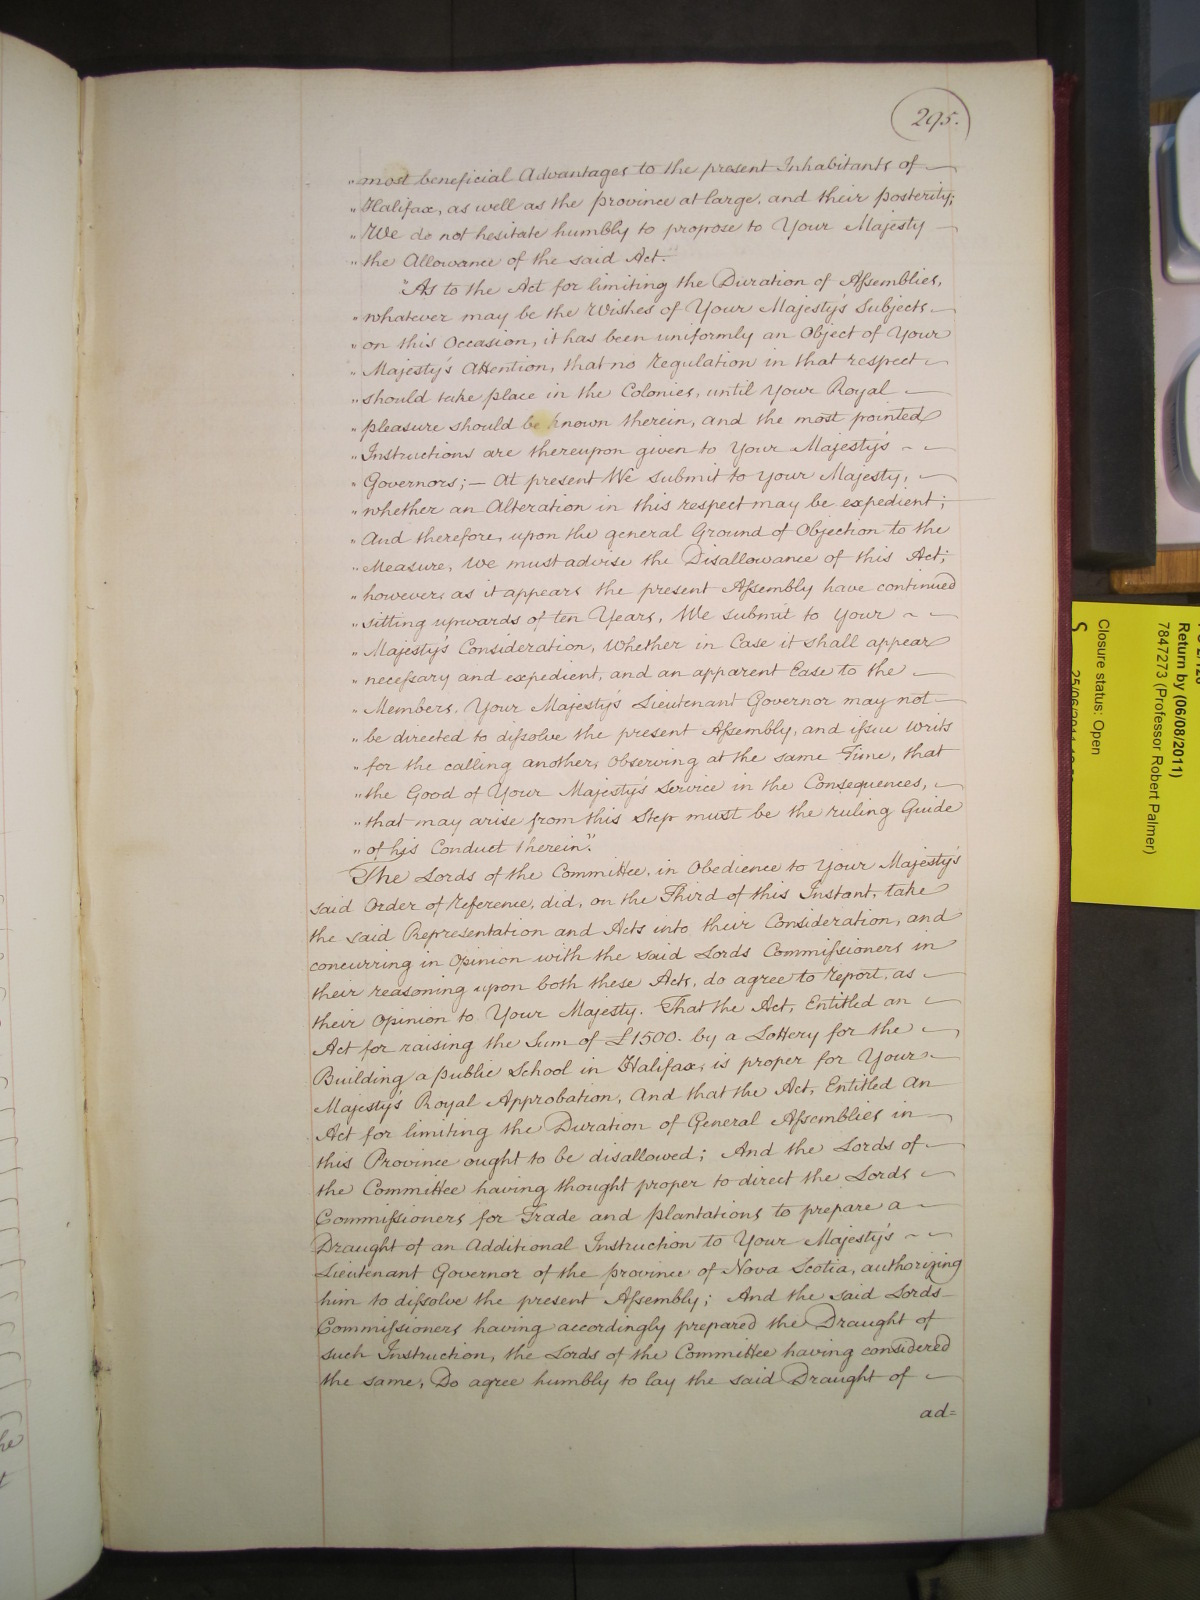 295.
"most beneficial Advantages to the present Inhabitants of
"Halifax, as well as the province at large, and their posterity;
"We do not hesitate humbly to propose to Your Majesty
"the Allowance of the said Act."
"As to the Act for limiting the Duration of Assemblies,
"whatever may be the Wishes of Your Majesty's Subjects
"on this Occasion, it has been uniformly an Object of Your
"Majesty's Attention, that no Regulation in that respect
"should take place in the Colonies, until Your Royal
"pleasure should be known therein, and the most pointed
"Instructions are thereupon given to Your Majesty's
"Governors; — At present We submit to Your Majesty,
"whether an Alteration in this respect may be expedient;
"And therefore, upon the general Ground of Objection to the
"Measure, We must advise the Disallowance of this Act;
"however, as it appears the present Assembly have continued
"sitting upwards of ten Years, We submit to Your
"Majesty's Consideration, Whether in Case it shall appear
"necessary and expedient, and an apparent Ease to the
"Members, Your Majesty's Lieutenant Governor may not
"be directed to dissolve the present Assembly, and issue Writs
"for the calling another, Observing at the same Time, that
"the Good of Your Majesty's Service in the Consequences,
"that may arise from this Step must be the ruling Guide
"of his Conduct therein".
The Lords of the Committee, in Obedience to Your Majesty's
said Order of Reference, did, on the Third of this Instant, take
the said Representation and Acts into their Consideration, and
concurring in Opinion with the said Lords Commissioners in
their reasoning upon both these Acts, do agree to report, as
their Opinion to Your Majesty. That the Act, Entitled an
Act for raising the Sum of £1500. by a Lottery for the
Building a public School in Halifax, is proper for Your
Majesty's Royal Approbation, And that the Act, Entitled An
Act for limiting the Duration of General Assemblies in
this Province ought to be disallowed; And the Lords of
the Committee having thought proper to direct the Lords
Commissioners for Trade and plantations to prepare a
Draught of an Additional Instruction to Your Majesty's
Lieutenant Governor of the province of Nova Scotia, authorizing
him to dissolve the present Assembly; And the said Lords
Commissioners having accordingly prepared the Draught of
such Instruction, the Lords of the Committee having considered
the same, Do agree humbly to lay the said Draught of
ad=
Return by (06/08/2011)
7847273 (Professor Robert Palmer)
Closure status: Open
S